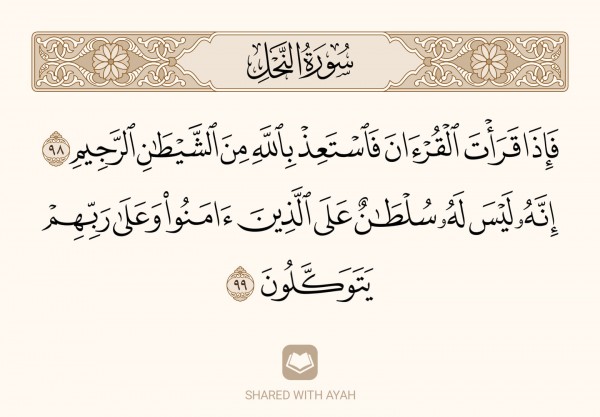 سُورَةُ النَّحۡلِ
فَإِذَا قَرَأۡتَ ٱلۡقُرۡءَانَ فَٱسۡتَعِذۡ بِٱللَّهِ مِنَ ٱلشَّيۡطَٰنِ ٱلرَّجِيمِ ٩٨
إِنَّهُۥ لَيۡسَ لَهُۥ سُلۡطَٰنٌ عَلَى ٱلَّذِينَ ءَامَنُواْ وَعَلَىٰ رَبِّهِمۡ
يَتَوَكَّلُونَ ٩٩
SHARED WITH AYAH